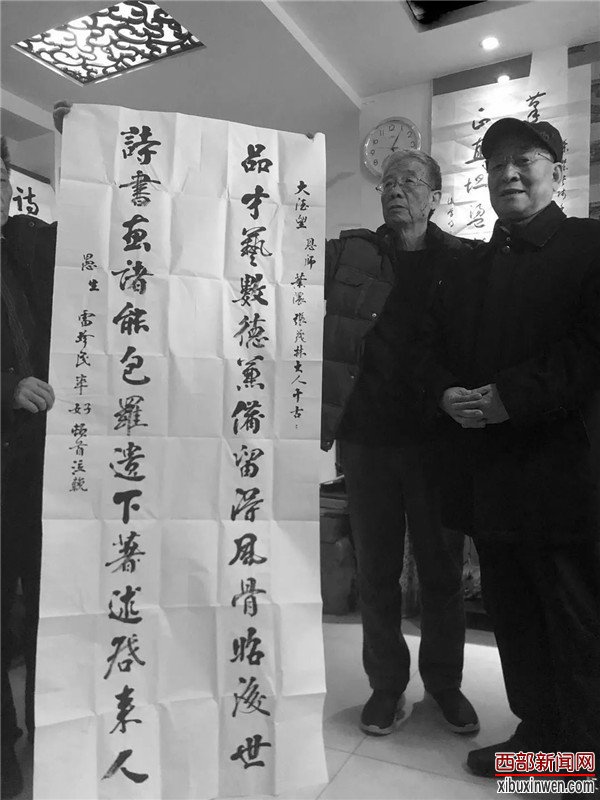 品才藝數德兼備留得風骨昭後世
恩師
張茂林夫人千古
詩書畫諸能包羅遺下著述啓来人
愚生
雷珍民率
頓首泣輓
正直坦蕩
詩
西部新闻网
xibuxinwen.com